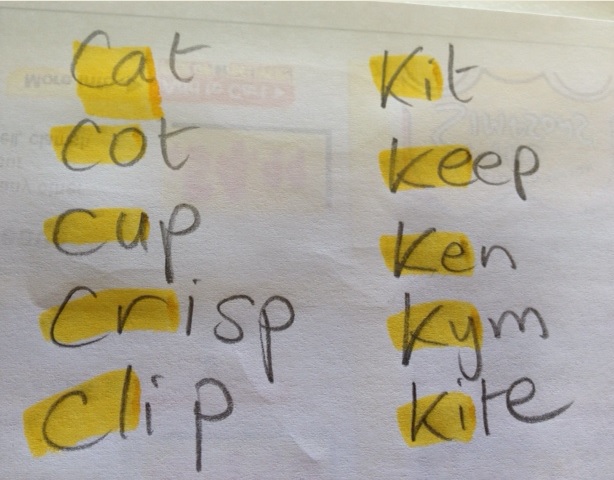 Cat
cot
cup
crisp
clip
Kit
keep
Ken
Kym
kite